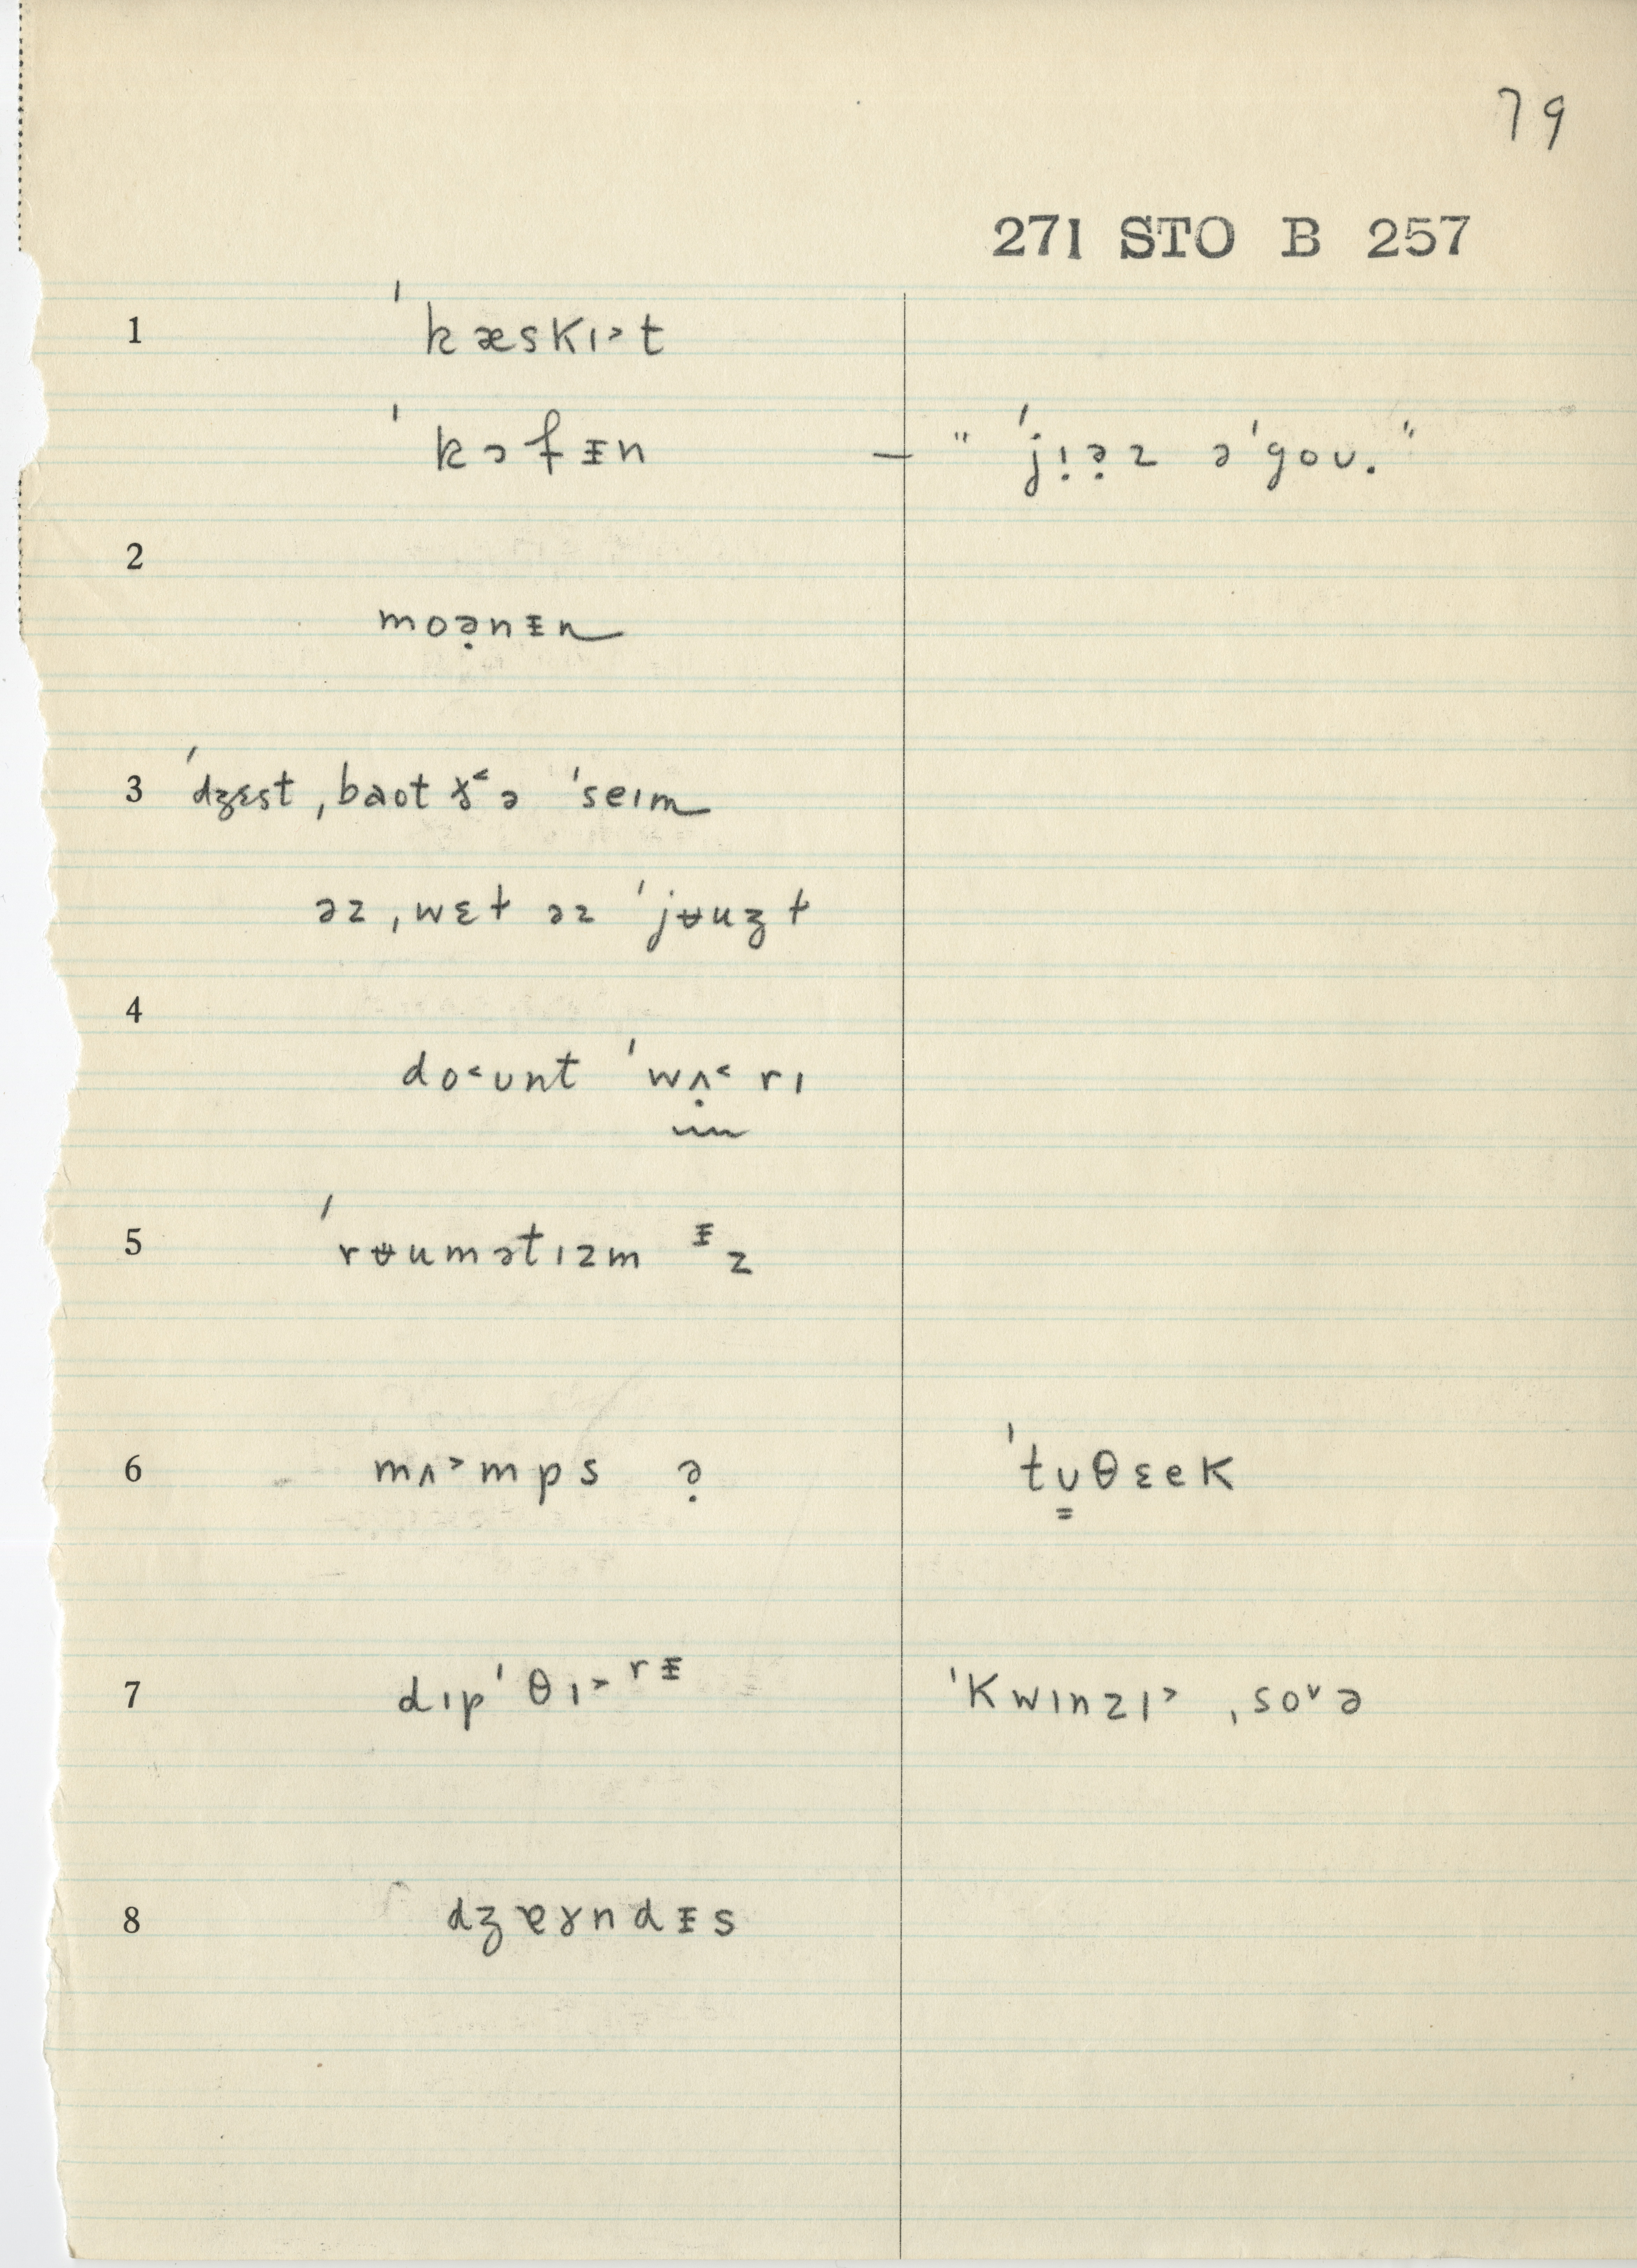 79
271 STO B 257
1 ˈkæskɪ˃t
ˈkɔfᵻn — " ˈjɪ̣ə̣z əˈgoʊ."
2
moə̣nᵻn
3 ˈdʒɛst ˌbaot ɤ˂ə ˈseɪm
əz ˌwɛt əz ˈjʉuʒt
4
do˂ʊnt ˈwʌ̣˂rɪ
5 ˈrʉumətɪzm ᵻz
6 mʌ˃mps ə̣ ˈtʊ̳θɛek
7 dɪpˈθɪ˃rᵻ ˈkwɪnzɪ˃ ˌso˅ə
8 dʒɐɤndᵻs